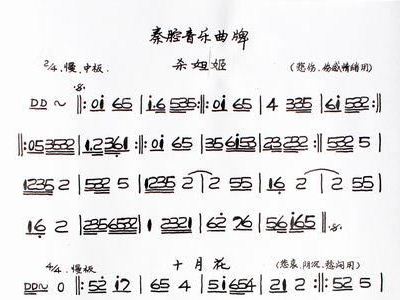 秦腔音乐曲牌
2/4.慢.中板. 杀妲姬 (悲伤、伤感情绪用)
DD～ ‖:0i 65 | i.6 535:‖:0i 65 | 4 335 | 6i 532:‖
‖:053532 | 1.2361:‖:0i 65 | 35 6i53 | 23 232:‖ 532 5 |
1235 2 | 532 5 | 1235 2 | 2 55 | 16 2 | 2 55 | 532 5 |
16 2 | 2356532 | 1 2321 | 62 76 | 56 i65 ‖
4/4.慢板 十月花 (悲哀、阴沉、愁闷用)
DD～ 0 ‖:52 i2 | 65 4 | 5i 654 | 21 2:‖ 52 5 |